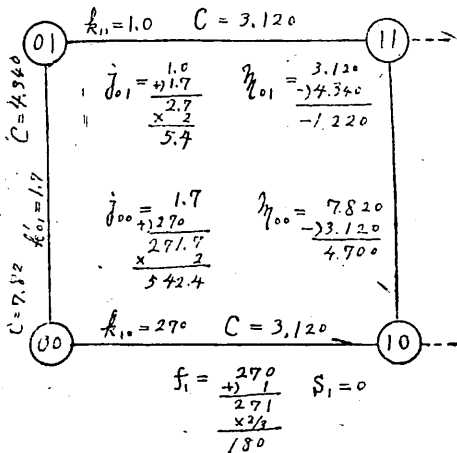 01 k₁₁=1.0 C = 3.120 11
C=4.340
j₀₁ = 1.0
+)1.7
2.7
× 2
5.4
η₀₁ = 3.120
-)4.340
-1.220
k'₀₁=1.7
j₀₀ = 1.7
+)270
271.7
× 2
542.4
η₀₀ = 7.820
-)3.120
4.700
C=7.82
00 k₁₀=270 C = 3,120 10
f₁ = 270
+) 1
271
×2/3
180
S₁=0